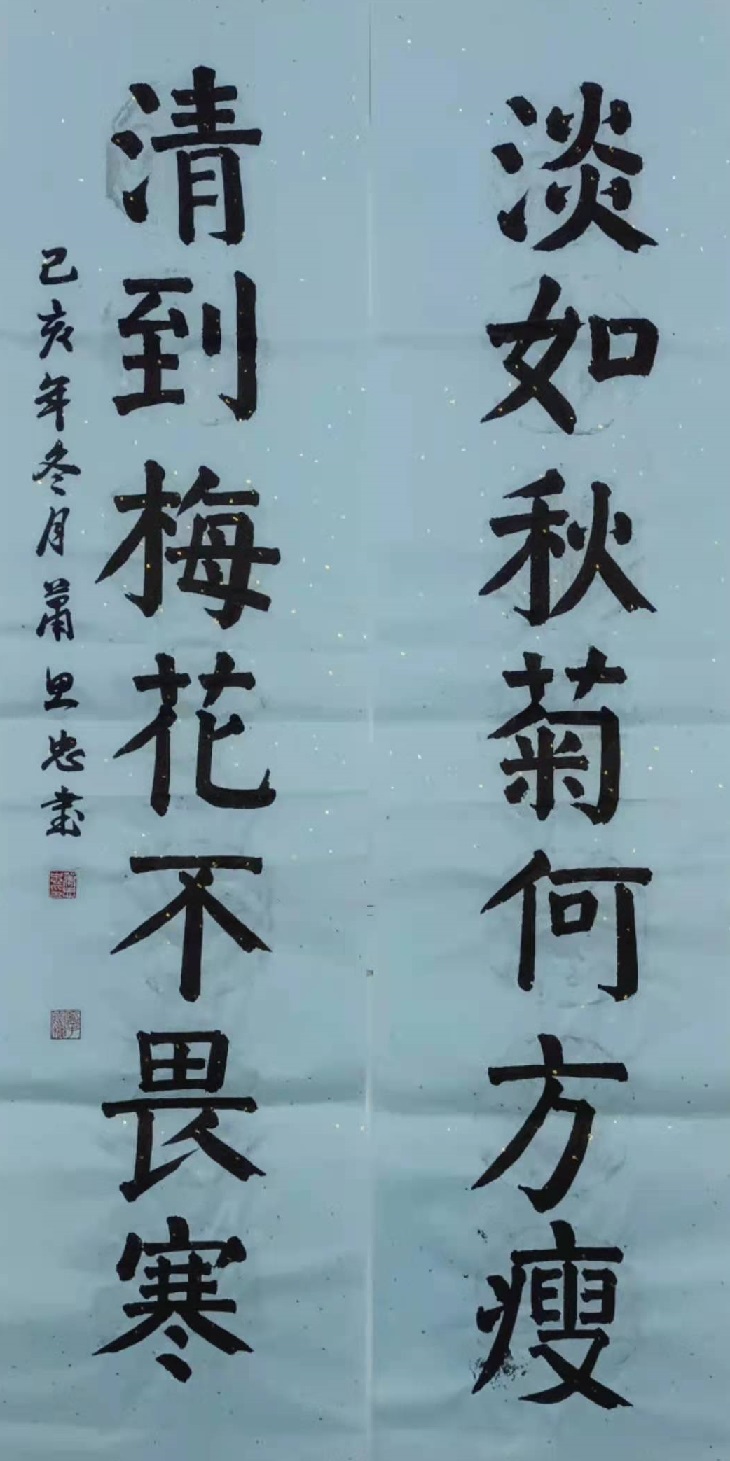 淡如秋菊何方瘦
清到梅花不畏寒
己亥年冬月萧思忠书